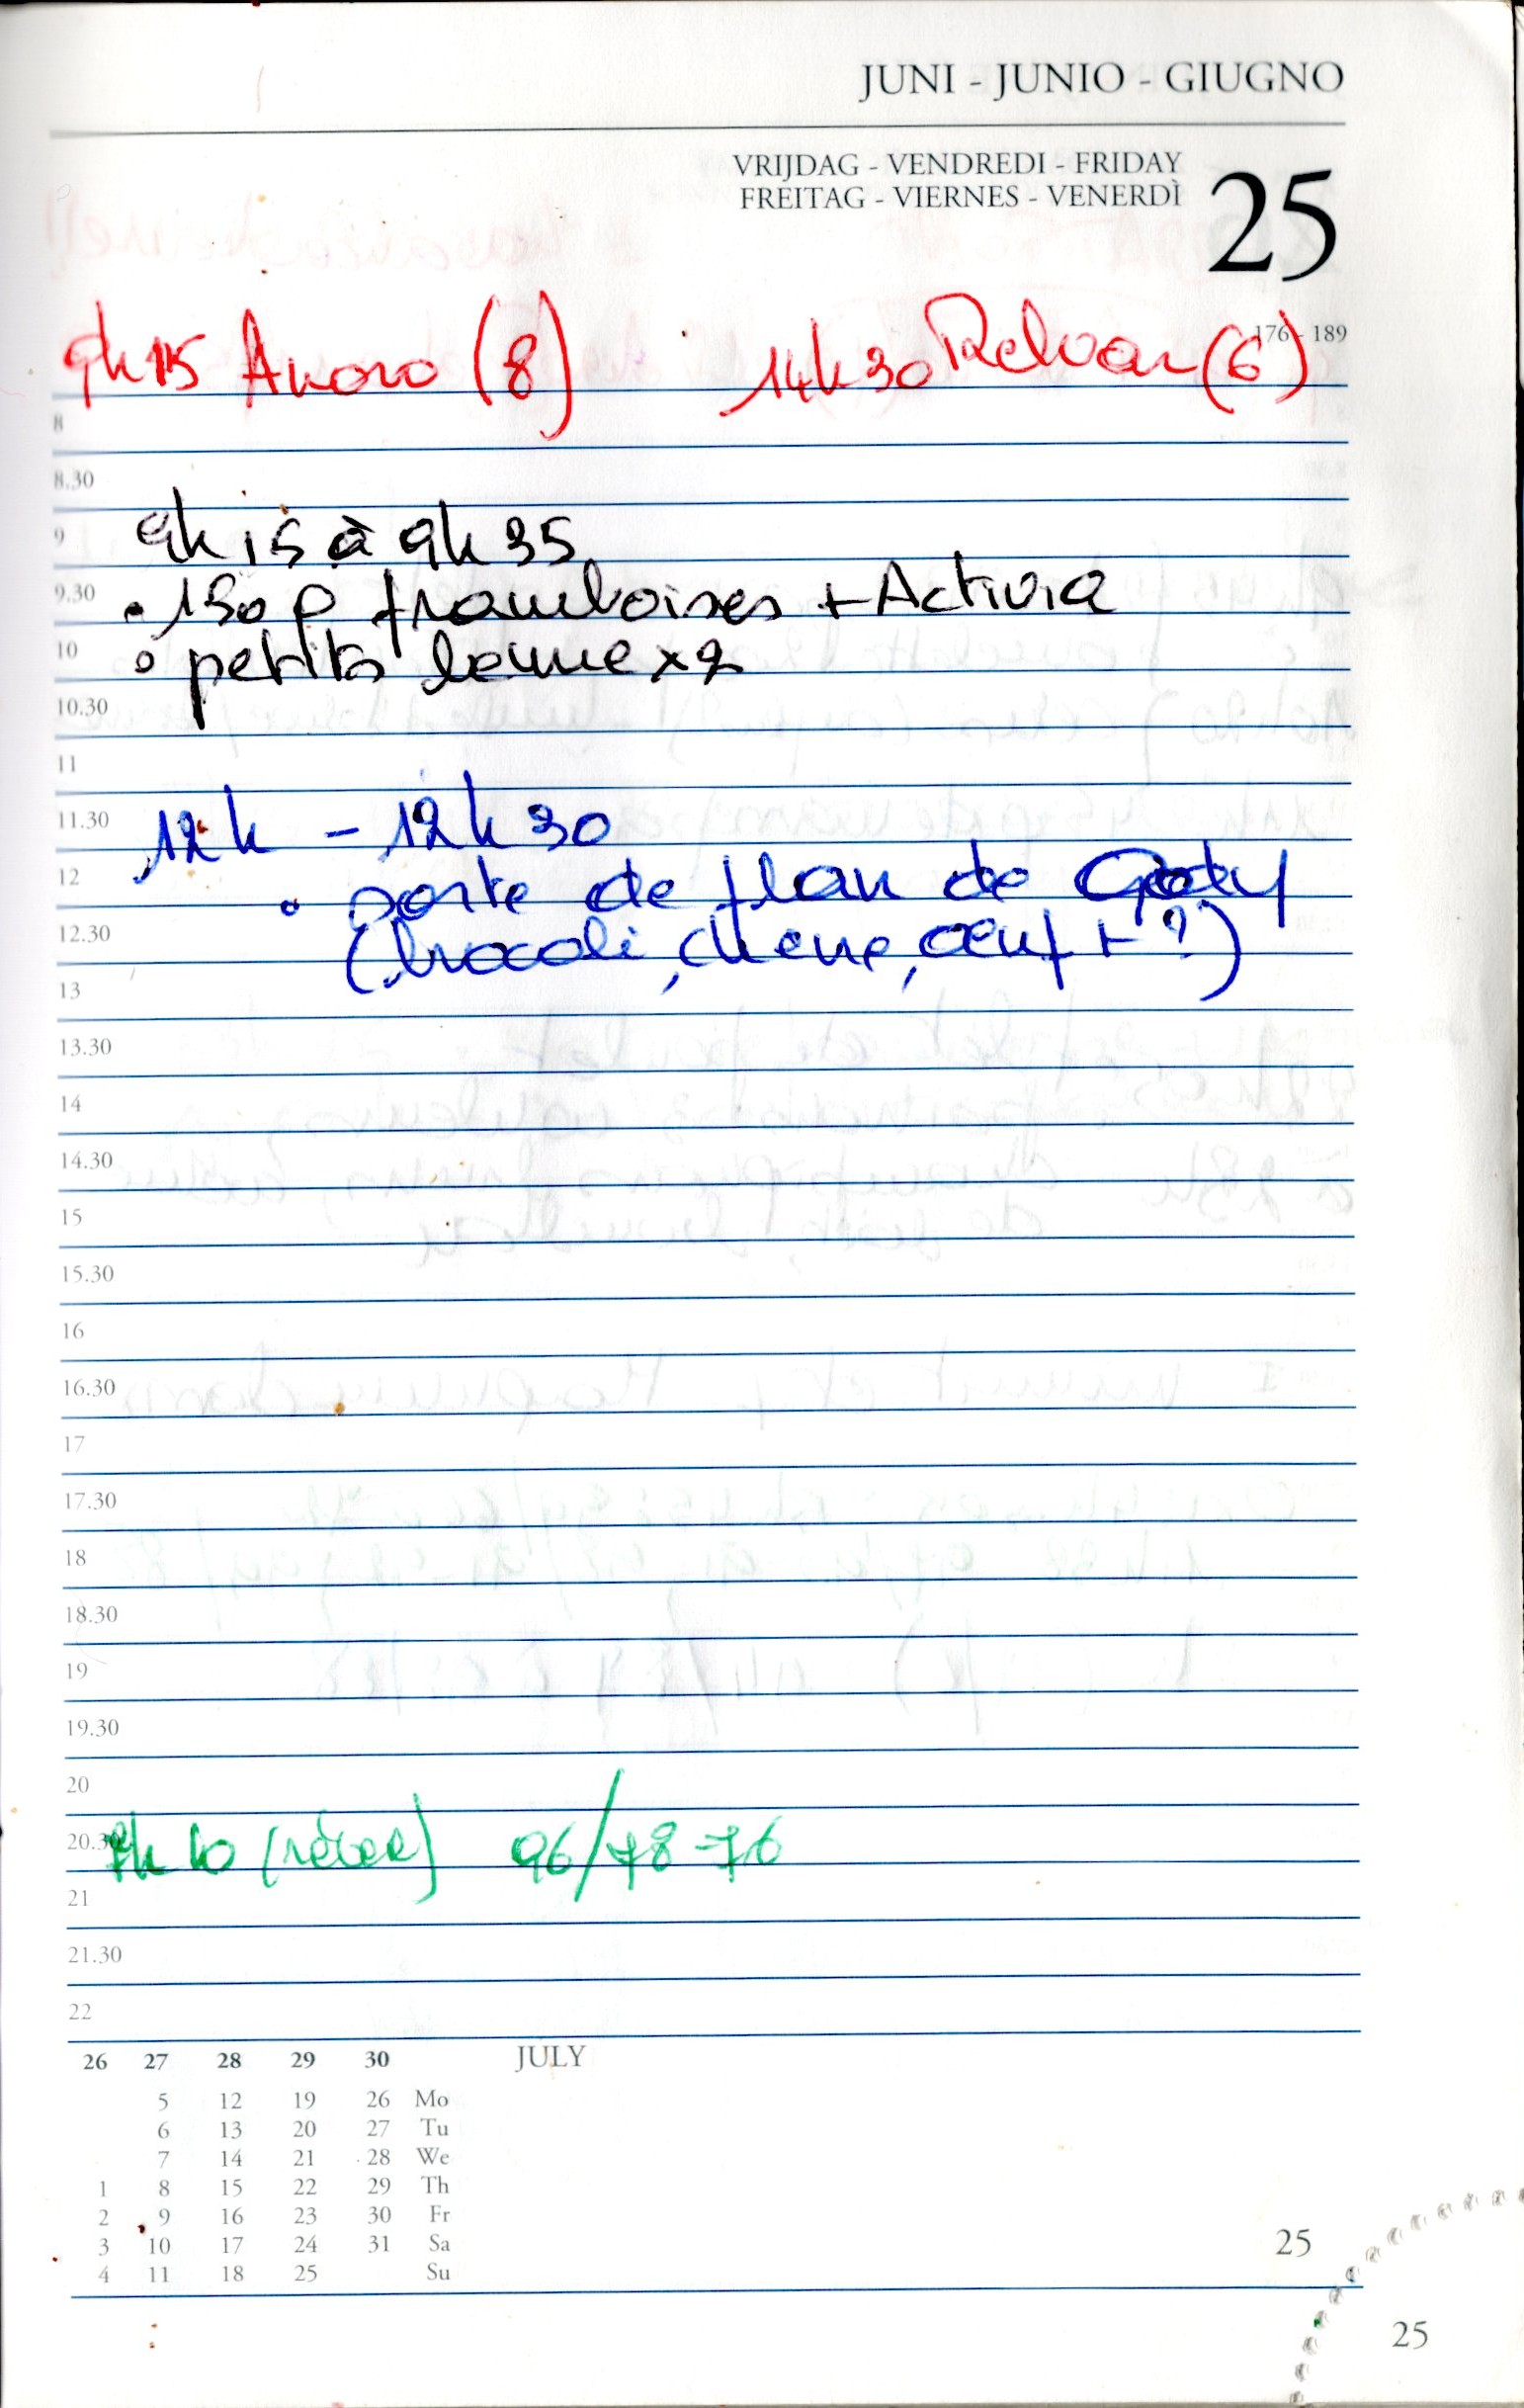 JUNI - JUNIO - GIUGNO
VRIJDAG - VENDREDI - FRIDAY
FREITAG - VIERNES - VENERDÌ
25
176 - 189
9h15 (8) 14h30 (6)
8
8.30
9h15 à 9h35
9
9.30
• 150 g framboises + Activia
10
• petits x2
10.30
11
11.30
12h - 12h30
12
• de flan de
12.30
(brocoli, chèvre, œuf + ?)
13
13.30
14
14.30
15
15.30
16
16.30
17
17.30
18
18.30
19
19.30
20
20.30
96/78-76
21
21.30
22
26 27 28 29 30 JULY
5 12 19 26 Mo
6 13 20 27 Tu
7 14 21 28 We
1 8 15 22 29 Th
2 9 16 23 30 Fr
3 10 17 24 31 Sa
4 11 18 25 Su
25
25